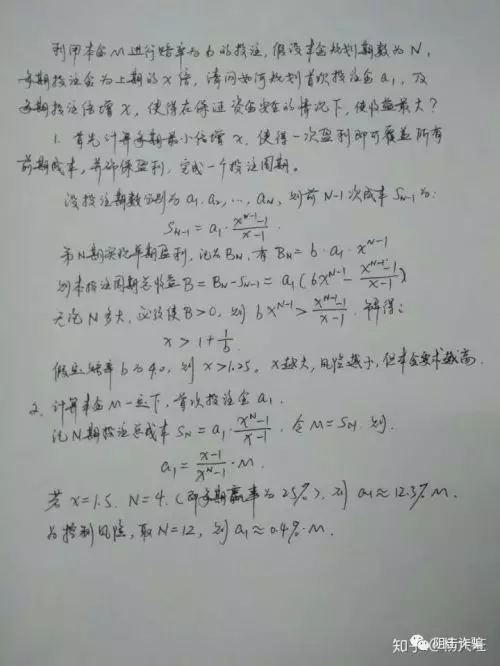 利用本金M进行赔率为b的投注,假设本金规划期数为N,
每期投注金为上期的x倍,请问如何规划首次投注金a₁,及
每期投注倍增x,使得在保证资金安全的情况下,使收益最大?
1. 首先计算每期最小倍增x,使得一次盈利即可覆盖所有
前期成本,并确保盈利,完成一个投注周期。
设投注期数分别为a₁,a₂,…,a_N,则前N-1次成本S_{N-1}为:
S_{N-1} = a₁·(x^{N-1}-1)/(x-1).
第N期实现单期盈利,记为B_N,有B_N=b·a₁·x^{N-1}
则本投注周期总收益B=B_N-S_{N-1}=a₁(bx^{N-1}-(x^{N-1}-1)/(x-1))
无论N多大,必须使B>0,则bx^{N-1}>(x^{N-1}-1)/(x-1).解得:
x>1+1/b.
假定赔率b为4.0,则x>1.25。x越大,风险越小,但本金要求越高.
2. 计算本金M一定下,首次投注金a₁.
记N期投注总成本S_N=a₁·(x^N-1)/(x-1),令M=S_N,则.
a₁=(x-1)/(x^N-1)·M.
若x=1.5,N=4.(即每期赢率为25%),则a₁≈12.3%M.
为控制风险,取N=12,则a₁≈0.4%·M.
知乎
阻击诈骗